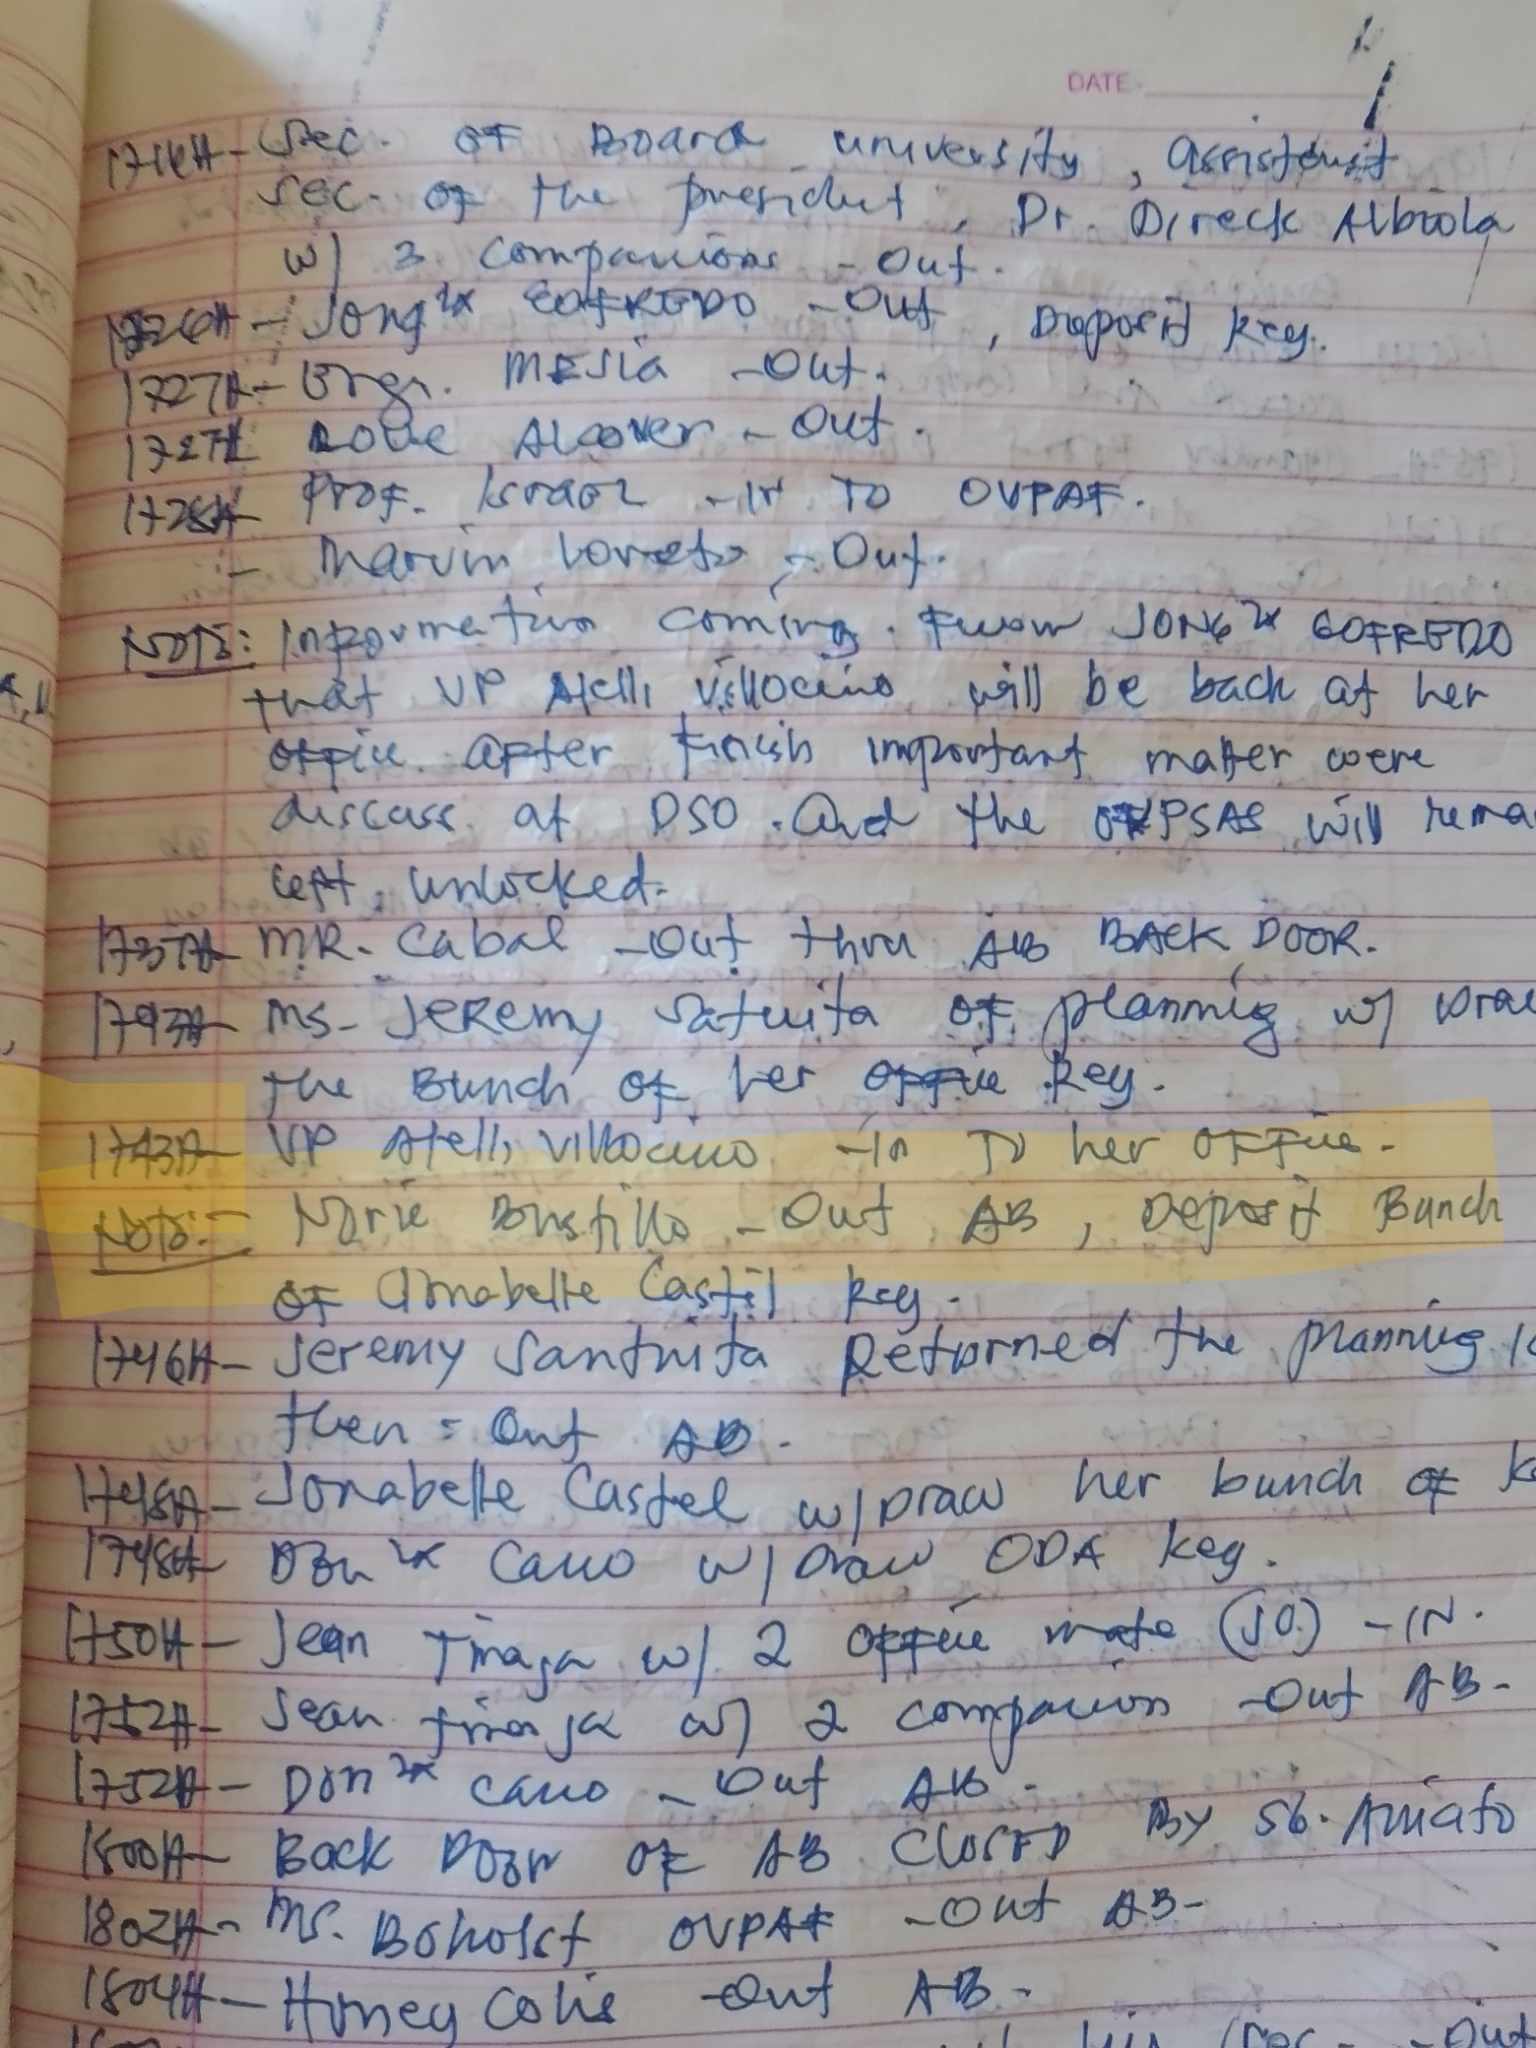 DATE
1716H - Sec. of Board university, assistant
sec. of the president, Dr. Direck Albiola
w/ 3 companions - Out.
1726H - Jong2x GOFREDO - Out, Deposit key.
1727H - Engr. MESIA - Out.
1727H Alcover - Out.
1728H Prof. Israel - In TO OVPAF.
- Marvin Loreto - Out.
NOTE: Information coming from JONG2x GOFREDO
that VP Atelli Villocino will be back at her
office after finish important matter were
discuss at DSO. And the OVPSAS will rema
left unlocked.
1737H MR. Cabal - Out thru AB BACK DOOR.
1743H Ms. JEREMY Satuita of planning w/ Draw
the Bunch of her office key.
1743H VP Atelli Villocino - In TO her OFFice.
NOTE: - Norie Bustillo - Out AB, Deposit Bunch
of Annabelle Castil key.
1746H - Jeremy Santuita Returned the planning
then = Out AB.
1748H - Jonabelle Castel w/Draw her bunch of
1748H Don2x Cano w/Draw ODA key.
1750H - Jean Tinaja w/ 2 office mate (JO.) - IN.
1752H - Jean tinaja w/ 2 companion - Out AB-
1752H - Don2x Cano - Out AB.
1800H - BACK DOOR OF AB CLOSED By SG. Amiato
1802H - MS. Boholst OVPAF - Out AB-
1804H - Honey Colis - Out AB-
- Out